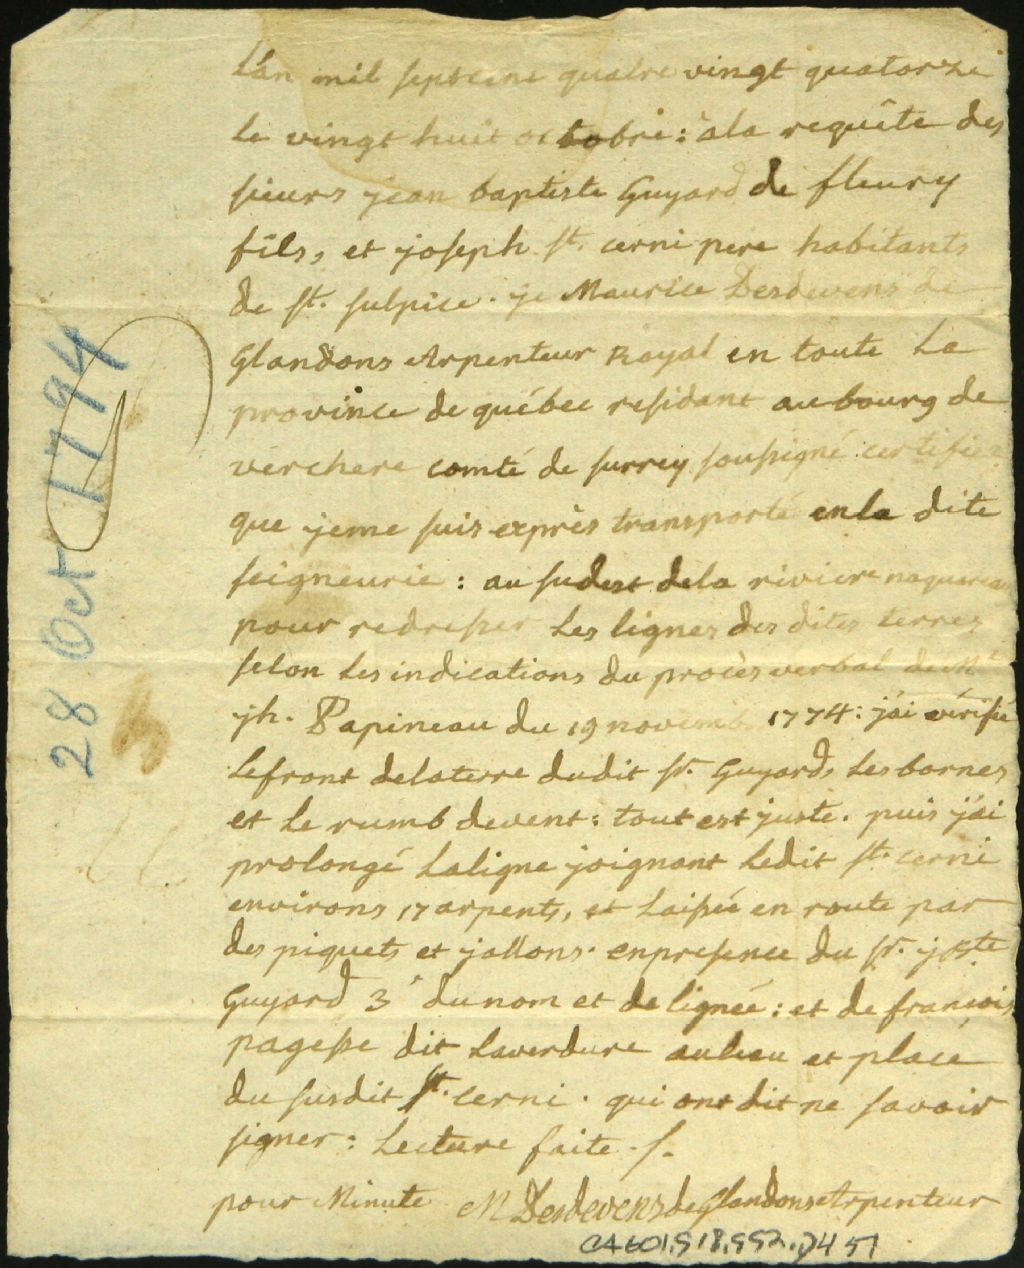 L'an mil septcent quatre vingt quatorze
le vingt huit octobre : à la requête des
sieurs jean baptiste Guyard de fleury
fils, et joseph st. cerni pere habitants
de st. sulpice. je Maurice Desdevens de
Glandons Arpenteur Royal en toute La
province de québec residant au bourg de
verchere comté de surrey soussigné certifie
que jeme suis exprès transporté enla dite
seigneurie : au sudest dela riviere
pour redresser Les lignes des dites terres
selon Les indications du procès verbal de Mr
jh. Papineau du 19 novemb. 1774 : j'ai vérifié
Lefront delaterre dudit sr. Guyard, Les bornes
et Le rumb devent : tout est juste. puis j'ai
prolongé Laligne joignant Ledit st. cerni
environs 17 arpents, et Laissée en route par
des piquets et jallons. enpresence du sr. j Bste
Guyard 3e du nom et de lignée : et de francois
pagesse dit Laverdure aulieu et place
du susdit st. cerni. qui ont dit ne savoir
signer : Lecture faite ./.
pour Minute M Desdevens de Glandons Arpenteur
28 Oct 1794
CA601,S18,SS2,D457